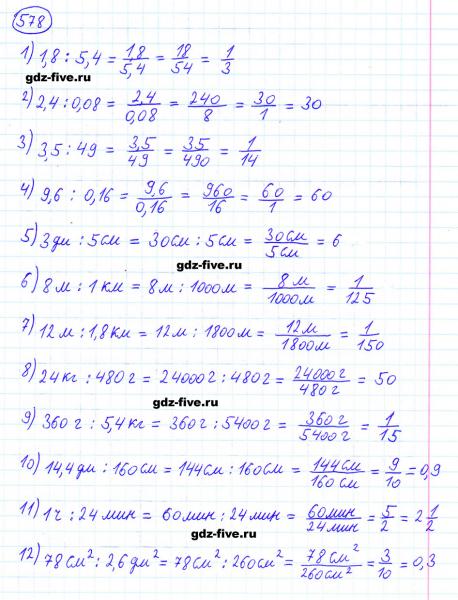 578
1) 1,8 : 5,4 = 1,8/5,4 = 18/54 = 1/3
gdz-five.ru
2) 2,4 : 0,08 = 2,4/0,08 = 240/8 = 30/1 = 30
3) 3,5 : 49 = 3,5/49 = 35/490 = 1/14
4) 9,6 : 0,16 = 9,6/0,16 = 960/16 = 60/1 = 60
5) 3 дм : 5 см = 30 см : 5 см = 30 см/5 см = 6
gdz-five.ru
6) 8 м : 1 км = 8 м : 1000 м = 8 м/1000 м = 1/125
7) 12 м : 1,8 км = 12 м : 1800 м = 12 м/1800 м = 1/150
8) 24 кг : 480 г = 24000 г : 480 г = 24000 г/480 г = 50
gdz-five.ru
9) 360 г : 5,4 кг = 360 г : 5400 г = 360 г/5400 г = 1/15
10) 14,4 дм : 160 см = 144 см : 160 см = 144 см/160 см = 9/10 = 0,9
11) 1 ч : 24 мин = 60 мин : 24 мин = 60 мин/24 мин = 5/2 = 2 1/2
gdz-five.ru
12) 78 см² : 2,6 дм² = 78 см² : 260 см² = 78 см²/260 см² = 3/10 = 0,3